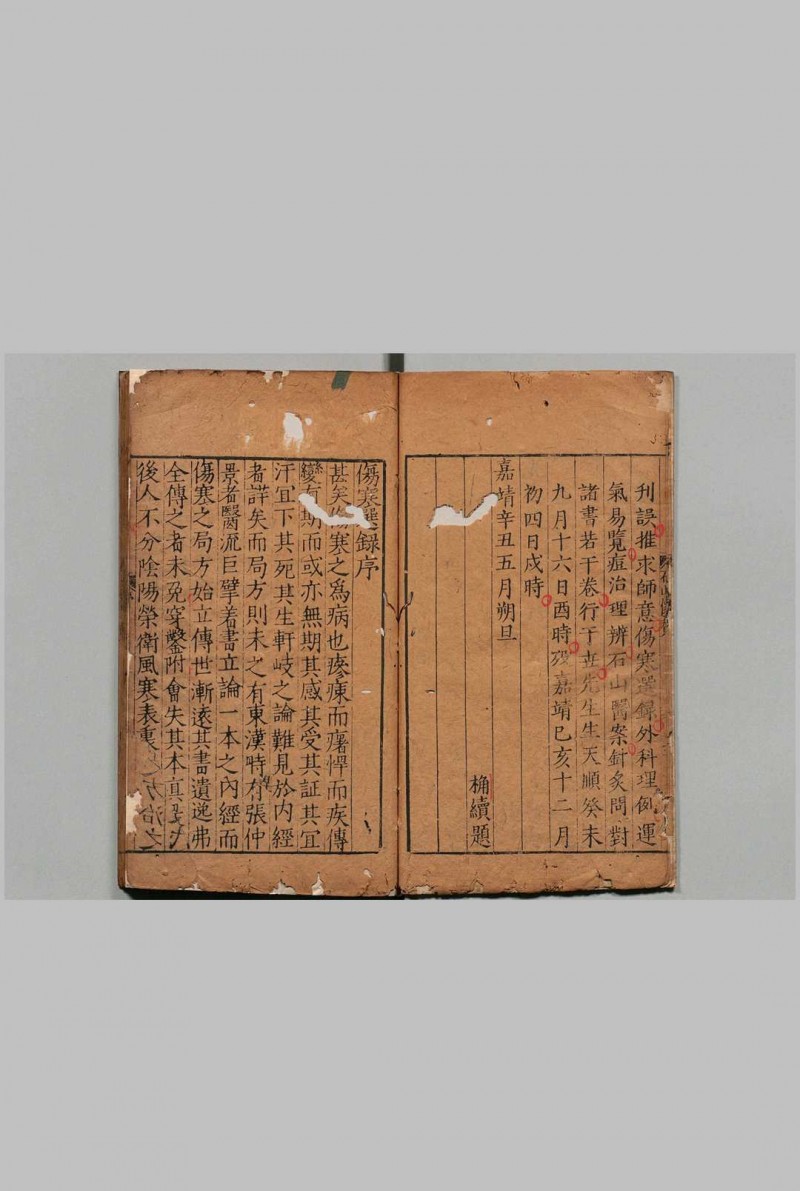 刋誤推求師意傷寒選録外科理例運
氣易覽痘治理辨石山醫案針灸問對
諸書若干卷行于世先生生天順癸未
九月十六日酉時殁嘉靖己亥十二月
初四日戌時
嘉靖辛丑五月朔旦
桷續題
傷寒選録序
甚矣傷寒之爲病也瘮㾕而癙悍而疾傳
變有期而或亦無期其感其受其証其冝
汗冝下其死其生軒岐之論難見於内經
者詳矣而局方則未之有東漢時有張仲
景者醫流巨擘着書立論一本之内經而
傷寒之局方始立傳世漸遠其書遺逸弗
全傳之者未免穿鑿附會失其本真
後人不分陰陽榮衛風寒表裏